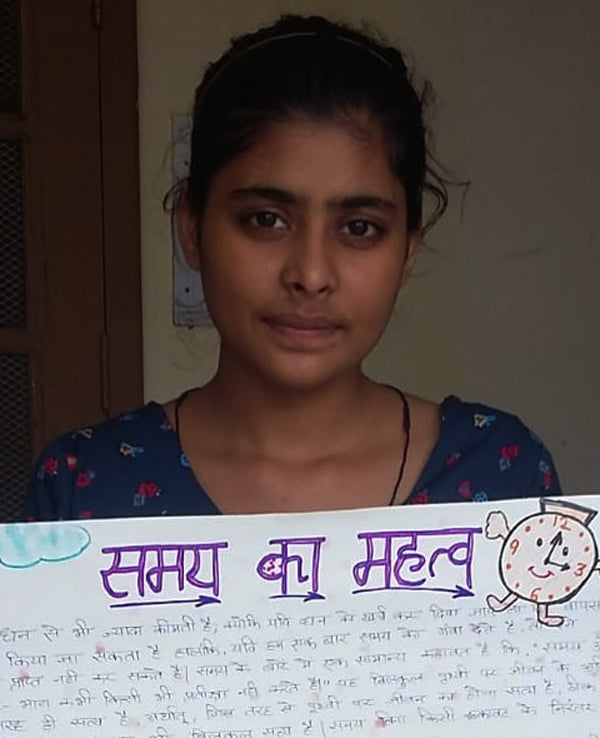 समय का महत्व
12
9
3
6
धन से भी ज्यादा कीमती है, क्योंकि यदि धन को खर्च कर दिया जाए तो वापस
किया जा सकता है हालांकि, यदि हम एक बार समय को गंवा देते है, तो
प्राप्त नहीं कर सकते है। समय के बारे में एक सामान्य कहावत है कि, "समय
कभी किसी की प्रतीक्षा नहीं करते है।" यह बिलकुल पृथ्वी पर जीवन के
तरह ही सत्य है, अर्थात्, जिस तरह से पृथ्वी पर जीवन का होना सत्य है, ठीक
बिलकुल सत्य है। समय बिना किसी रुकावट के निरंतर